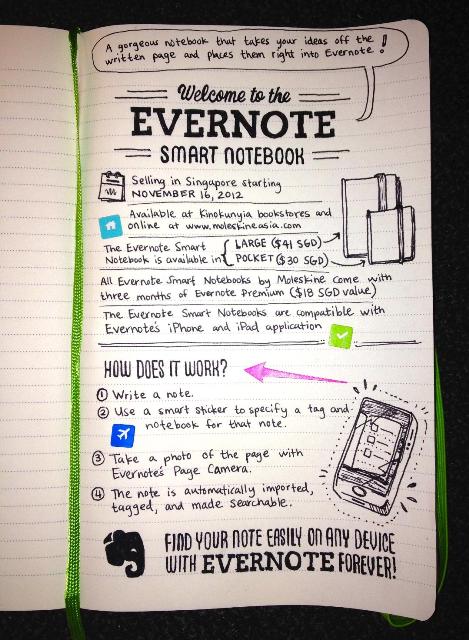 A gorgeous notebook that takes your ideas off the
written page and places them right into Evernote!
Welcome to the
EVERNOTE
SMART NOTEBOOK
Selling in Singapore starting
NOVEMBER 16, 2012
Available at Kinokunyia bookstores and
online at www.moleskineasia.com
The Evernote Smart
Notebook is available in
LARGE ($41 SGD)
POCKET ($30 SGD)
All Evernote Smart Notebooks by Moleskine come with
three months of Evernote Premium ($18 SGD value)
The Evernote Smart Notebooks are compatible with
Evernote's iPhone and iPad application
HOW DOES IT WORK?
1 Write a note.
2 Use a smart sticker to specify a tag and
notebook for that note.
3 Take a photo of the page with
Evernote's Page Camera.
4 The note is automatically imported,
tagged, and made searchable.
FIND YOUR NOTE EASILY ON ANY DEVICE
WITH EVERNOTE FOREVER!